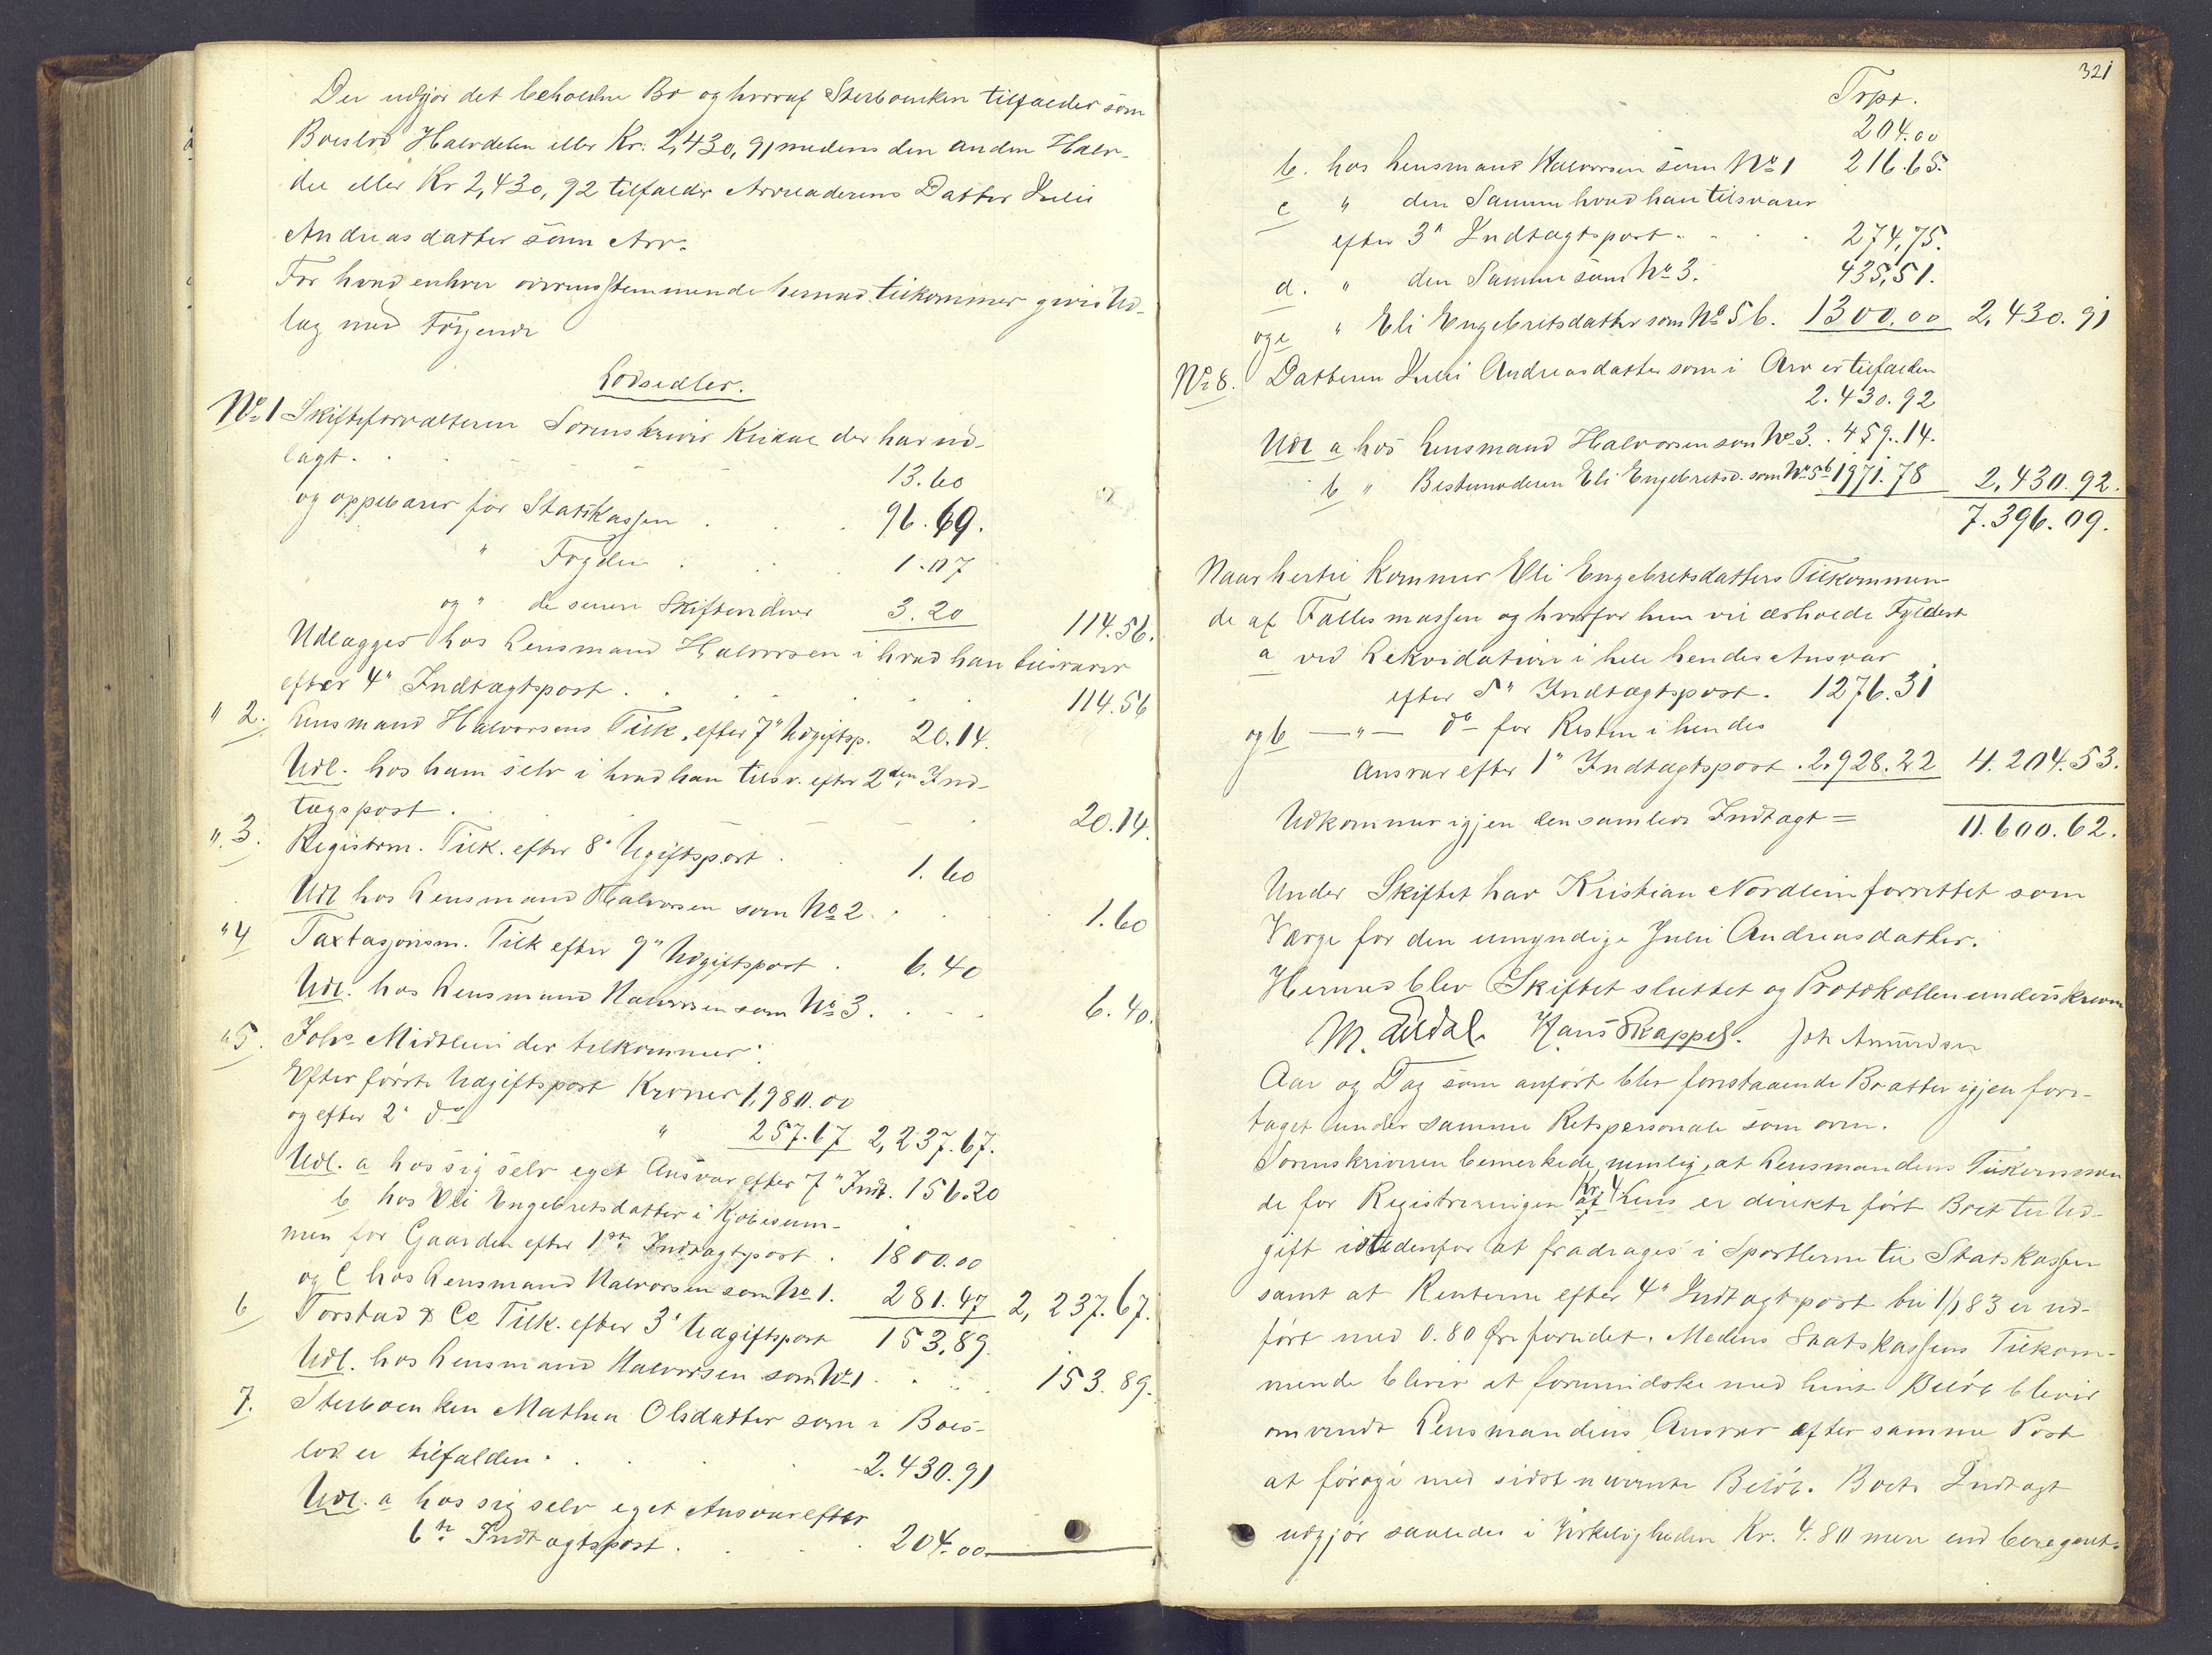 Der udgjør det beholdne Bo og hvoraf Sterboenken tilfalder som
Boeslod Halvdelen eller Kr. 2,430,91 medens den anden Halv-
del eller Kr 2,430,92 tilfalder Arveladerens Datter Julie
Andreasdatter som Arv.
For hvad enhver overensstemmende hermed tilkommer gives Ud-
læg med Følgende
Lodsedler.
No 1 Skifteforvalteren Sorenskriver der har ud-
lagt . 13.60
og oppebærer for Statskassen . . . 96.69.
" Fogden . . . 1.07
og " de senere Skifteudlæg 3.20 114.56.
Udlægges hos Lensmand Halvorsen i hvad han tilsvarer
efter 4" Indtægtspost . . . 114.56
" 2. Lensmand Halvorsens Tilk. efter 7" Udgiftsp. 20.14.
Udl. hos ham selv i hvad han tilsv. efter 2den Ind-
tægspost . . 20.14.
" 3. Registrm. Tilk. efter 8" Ugiftspost . . 1.60
Udl hos Lensmand Halvorsen som No 2 . . 1.60
" 4 Taxtasjonsm. Tilk efter 9" Udgiftspost . 6.40
Udl. hos Lensmand Halvorsen som No 3 . . . 6.40.
" 5. Johs Midtlein der tilkommer:
Efter første Udgiftspost Kroner 1,980.00
og efter 2" do " 257.67 2,237.67.
Udl. a hos sig selv eget Ansvar efter 7" Indt. 156.20
b hos Eli Engebretsdatter i Kjøbesum-
men for Gaarden efter 1ste Indtægtspost . 1800.00
og c hos Lensmand Halvorsen som No 1. 281.47 2,237.67.
6 Torstad & Co Tilk. efter 3" Udgiftspost 153,89.
Udl. hos Lensmand Halvorsen som No 1 . . . 153.89.
7. Sterboenken Mathea Olsdatter som i Boes-
lod er tilfalden . . . 2.430.91
Udl. a hos sig selv eget Ansvar efter
6te Indtægtspost . . . 204.00
321
Trpt.
204.00
b. hos Lensmand Halvorsen som No 1 216.65.
c " den Samme hvad han tilsvarer
efter 3" Indtægtspost . . . 274,75.
d. " den Samme som No 3. 435,51.
og e " Eli Engebretsdatter som No 5 b. 1300.00 2,430.91
No 8. Datteren Julie Andreasdatter som i Arv er tilfalden
2.430.92
Udl a hos Lensmand Halvorsen som No 3. . 459.14.
b " Bestemoderen Eli Engebretsd. som No 5 b 1971.78 2,430.92.
7.396.09.
Naar hertil kommer Eli Engebretsdatters Tilkommen-
de af Fællesmassen og hvorfor hun vil erholde Fyldest
a ved Likvidation i hele hendes Ansvar
efter 5" Indtægtspost . 1276.31
og b — " — do for Resten i hendes
Ansvar efter 1" Indtægtspost . 2.928.22 4.204.53.
Udkommer igjen den samlede Indtægt = 11.600.62.
Under Skiftet har Kristian Nordlein forrettet som
Værge for den umyndige Julie Andreasdatter.
Hermed blev Skiftet sluttet og Protokollen underskreven
M. Hans Rappel. Joh Amundsen
Aar og Dag som anført blev forestaaende Bo atter igjen fore-
taget under samme Retspersonale som oven.
Sorenskriveren bemerkede nemlig, at Lensmandens Tilkommen
de for Registreringen Kr 4 er direkte ført Boet til Ud-
gift istedenfor at fradrages i Sportlerne til Statskassen
samt at Renterne efter 4" Indtægtspost til 1/1 83 er ud-
ført med 0.80 Øre formeget. Medens Statskassens Tilkom-
mende bliver at formindske med hint Beløb bliver
omvendt Lensmandens Ansvar efter samme Post
at forøge med sidst nævnte Beløb. Boets Indtægt
udgjør saaledes i Virkeligheden Kr. 4.80 mere end beregnet.